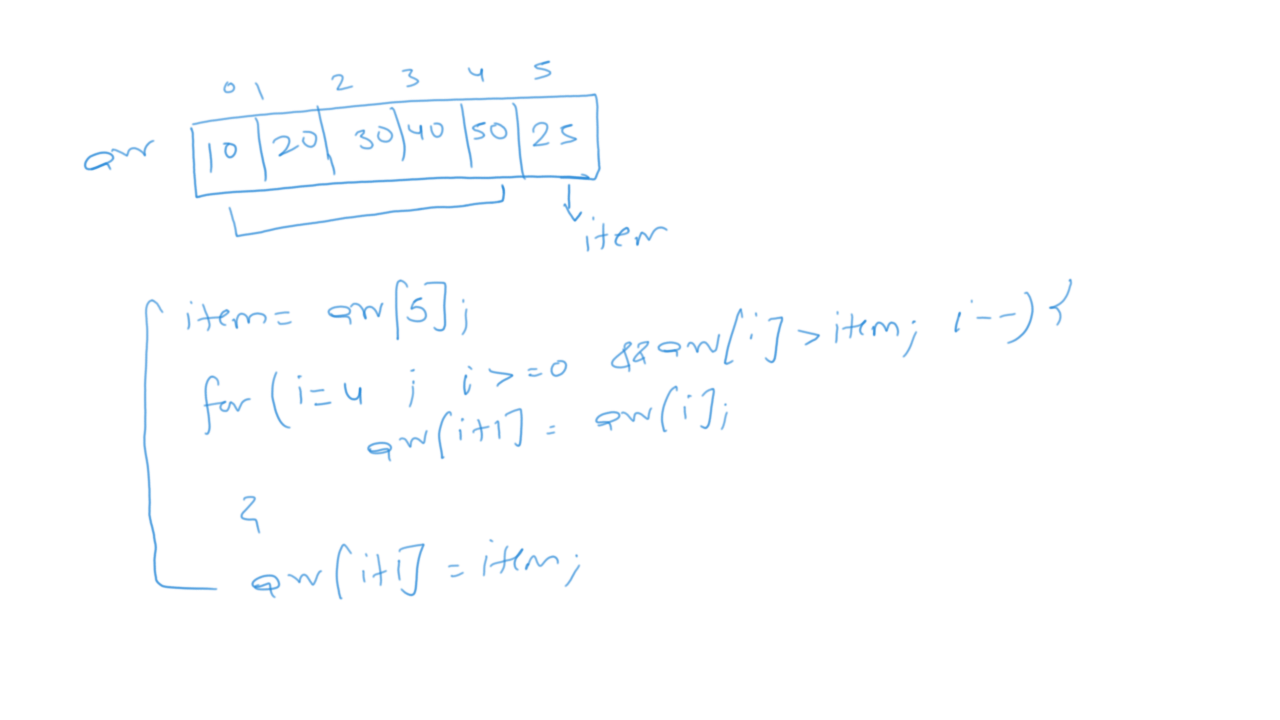 0 1 2 3 4 5
arr 10 20 30 40 50 25
item
item = arr[5];
for (i=4 ; i>=0 && arr[i]>item; i--) {
arr[i+1] = arr[i];
}
arr[i+1] = item;